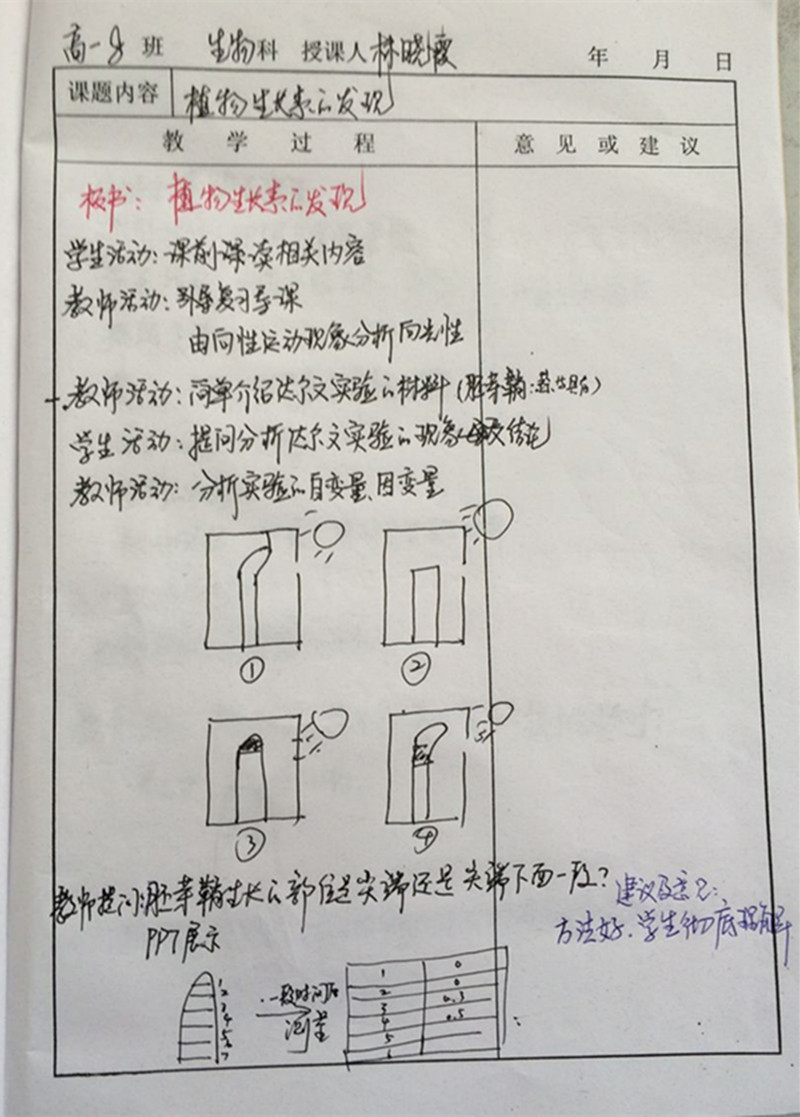 高一8班 生物科 授课人林晓霞 年 月 日
课题内容 植物生长素的发现
教学过程 意见或建议
板书：植物生长素的发现
学生活动：课前课读相关内容
教师活动：引导复习导课
由向性运动现象分析向光性
教师活动：简单介绍达尔文实验的材料（胚芽鞘：
学生活动：提问分析达尔文实验的现象及结论
教师活动：分析实验的自变量、因变量
① ②
③ ④
教师提问：胚芽鞘生长的部位是尖端还是尖端下面一段？
建议及意见：
方法好、学生彻底
PPT展示
1
2
3
4
5
6
7
一段时间后
测量
1 0
2 0
3 0.3
4 0.5
5
6